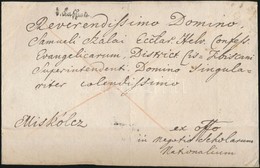 Reverendissimo Domino,
Samueli Szalai Eccles. Helv. Confess.
Evangelicarum District Cis
Superintendenti Domino Singula-
riter colendissimo
Miskolcz
ex offo
in negotio Scholarum
Nationalium